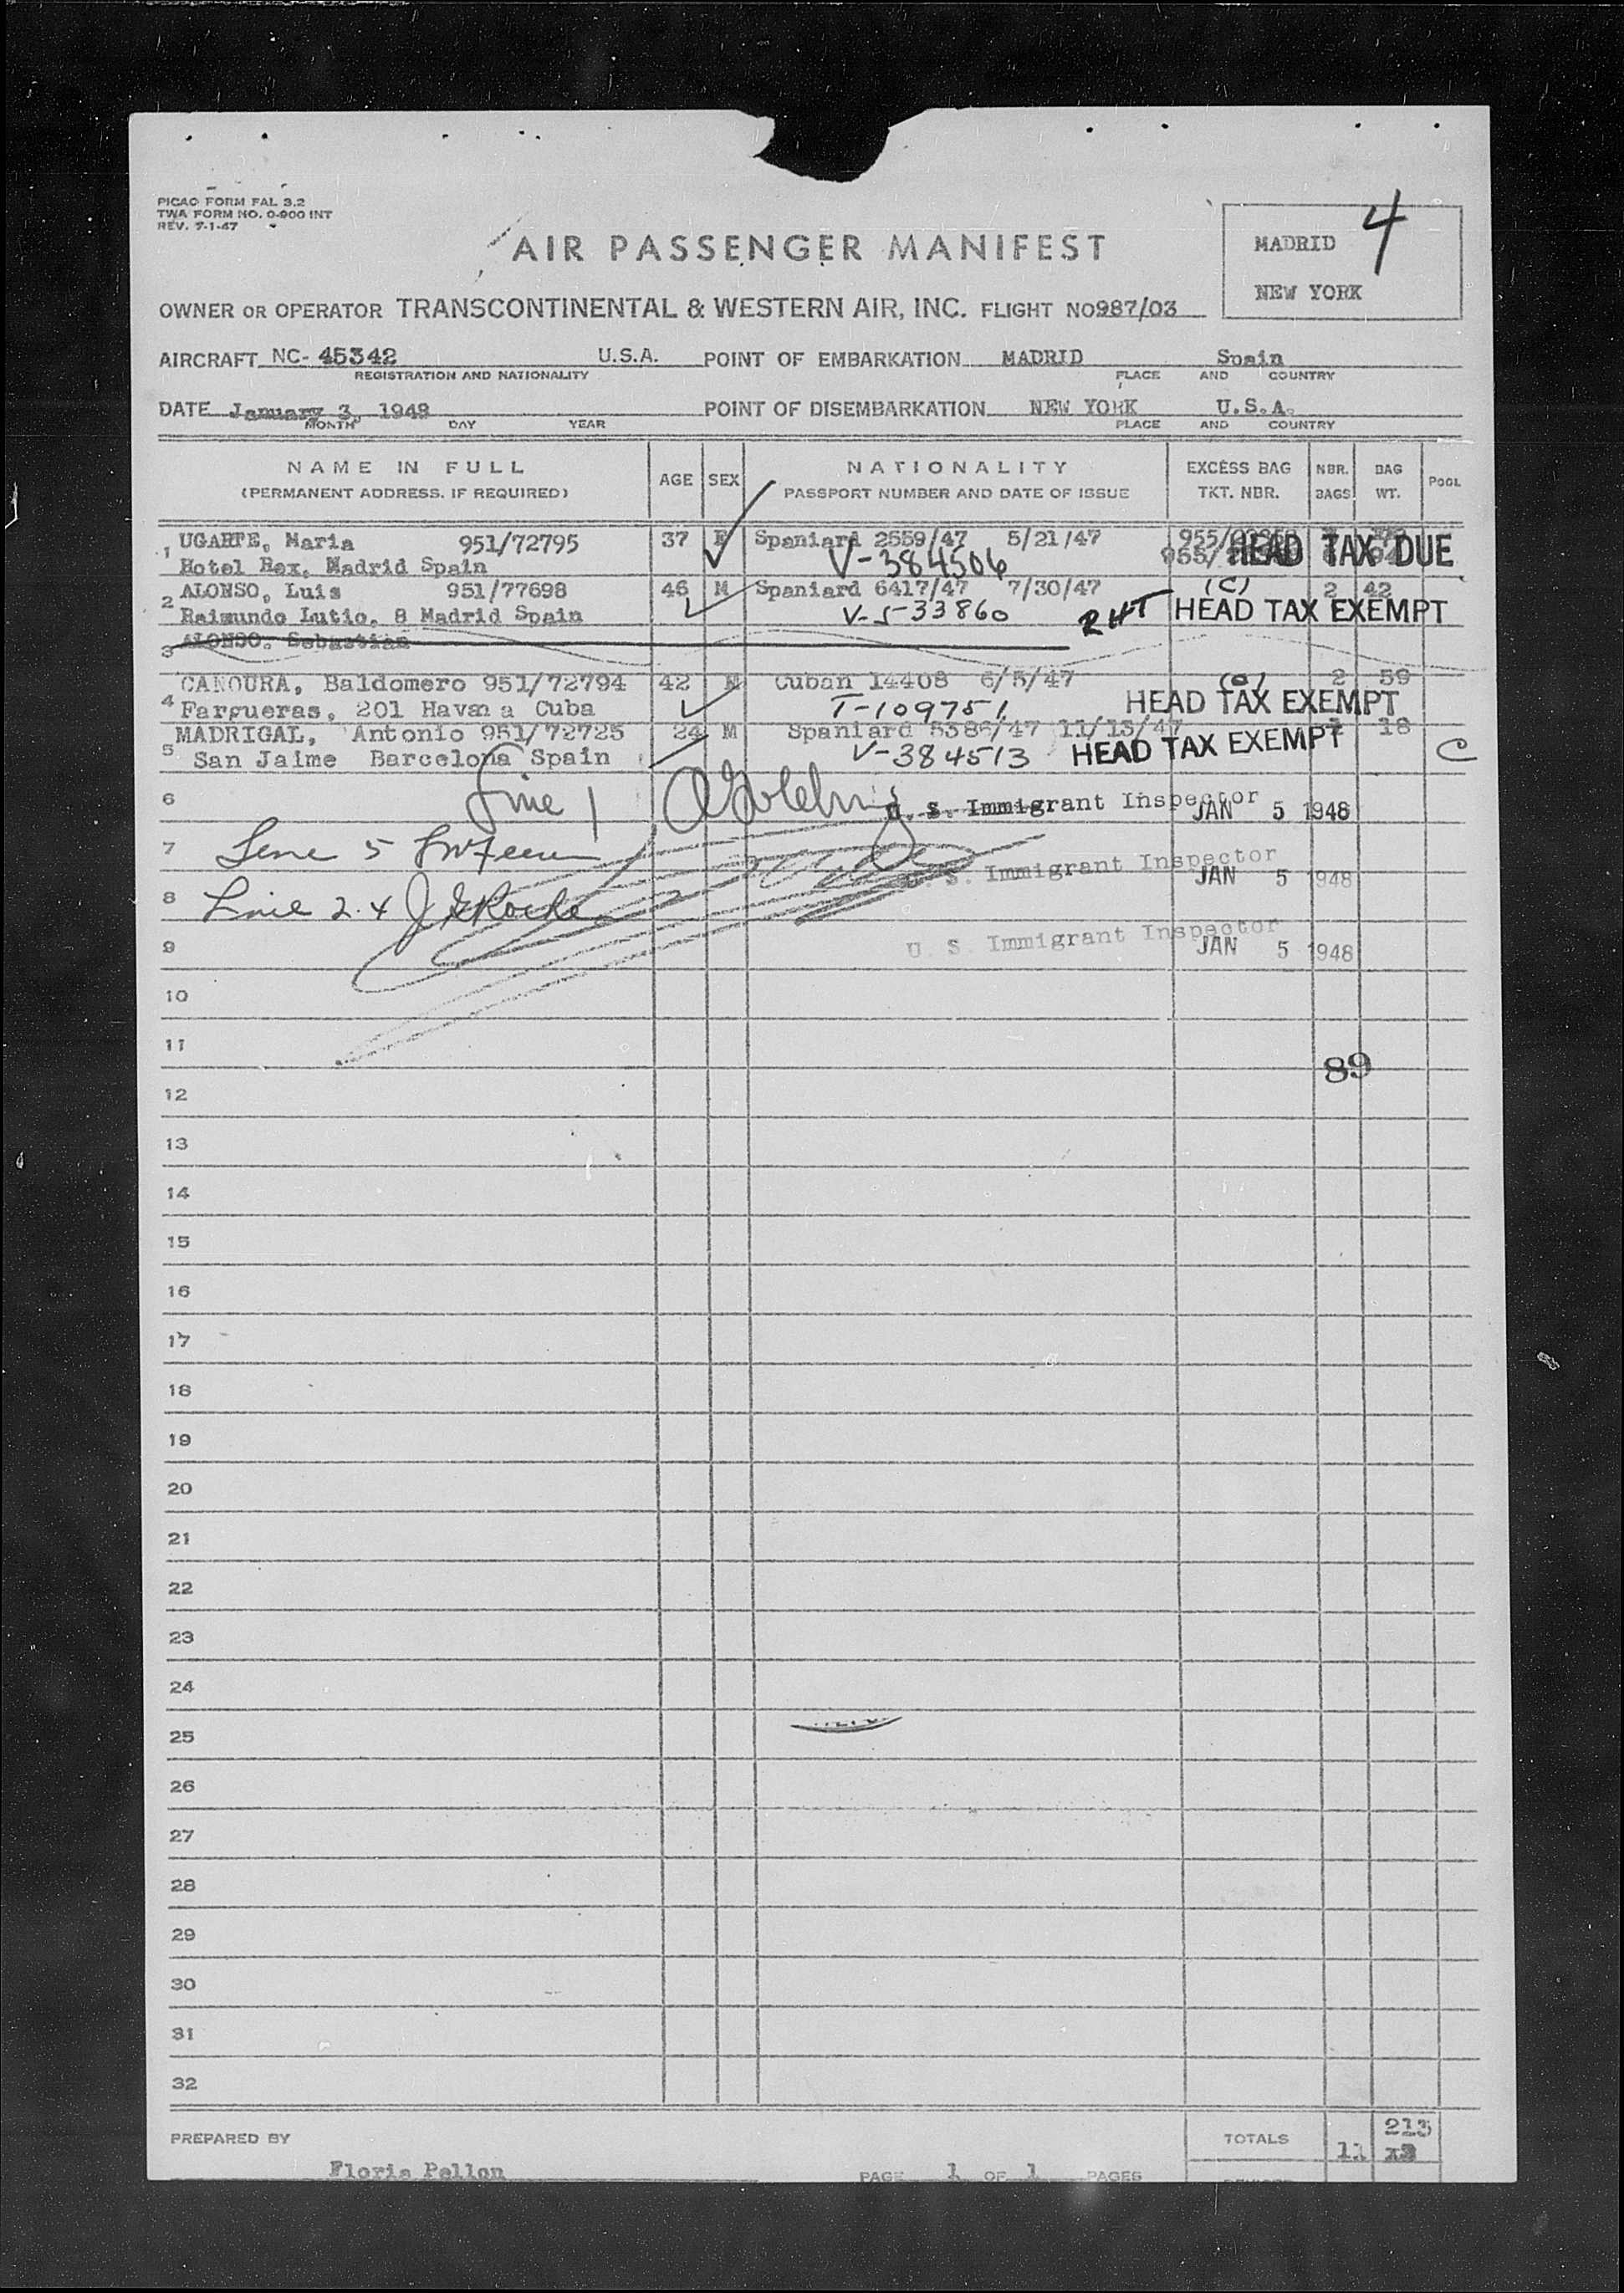 PICAO FORM FAL 3.2
TWA FORM NO. O-900 INT
REV. 7-1-47
AIR PASSENGER MANIFEST
MADRID 4
NEW YORK
OWNER OR OPERATOR TRANSCONTINENTAL & WESTERN AIR, INC. FLIGHT NO 987/03
AIRCRAFT NC- 45342 U.S.A. POINT OF EMBARKATION MADRID Spain
REGISTRATION AND NATIONALITY PLACE AND COUNTRY
DATE January 3, 1948 POINT OF DISEMBARKATION NEW YORK U.S.A.
MONTH DAY YEAR PLACE AND COUNTRY
NAME IN FULL AGE SEX NATIONALITY EXCESS BAG NBR. BAG POOL
(PERMANENT ADDRESS, IF REQUIRED) PASSPORT NUMBER AND DATE OF ISSUE TKT. NBR. BAGS WT.
1 UGARTE, Maria 951/72795 37 F Spaniard 2559/47 5/21/47
Hotel Rex, Madrid Spain V-384506 HEAD TAX DUE
2 ALONSO, Luis 951/77698 46 M Spaniard 6417/47 7/30/47 (C) 2 42
Raimundo Lutio, 8 Madrid Spain V-533860 RHT HEAD TAX EXEMPT
3 ALONSO, Sebastian
4 CANOURA, Baldomero 951/72794 42 M Cuban 14408 6/5/47 (C) 2 59
Fargueras, 201 Havana Cuba T-109751 HEAD TAX EXEMPT
MADRIGAL, Antonio 951/72725 24 M Spaniard 5386/47 11/13/47 18
5 San Jaime Barcelona Spain V-384513 HEAD TAX EXEMPT C
6 Line 1 U. S. Immigrant Inspector JAN 5 1948
7 Line 5
U. S. Immigrant Inspector JAN 5 1948
8 Line 2.4
9 U. S. Immigrant Inspector JAN 5 1948
10
11
89
12
13
14
15
16
17
18
19
20
21
22
23
24
25
26
27
28
29
30
31
32
213
PREPARED BY TOTALS 11
Floris Pellon PAGE 1 OF 1 PAGES